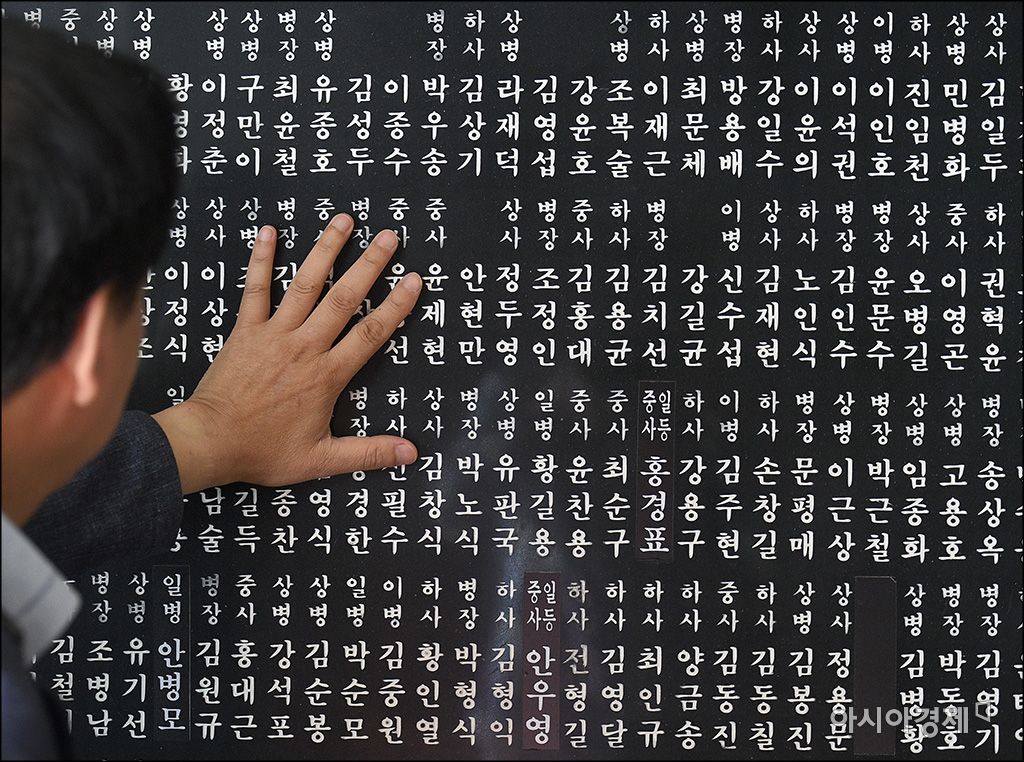 상병
상병
상병 이정춘
상병 구만이
병장 최윤철
상병 유종호
김성두
이중수
병장 박우송
하사 김상기
상병 라재덕
김영섭
강윤호
상병 조복술
하사 이재근
상병 최문체
병장 방용배
하사 강일수
상사 이윤의
상병 이석권
이병 이인호
하사 진임천
상병 민병화
상사 김일두
상병 이정식
상사 이상현
상병
병장 김
병장
중사
중사 윤제현
안현만
상사 정두영
병장 조정인
중사 김홍대
하사 김용균
병장 김치선
강길균
이병 신수섭
상사 김재현
하사 노인식
병장 김인수
병장 윤문수
상사 오병길
중사 이영곤
하사 권혁윤
남술
길득
종찬
영식
병장 경한
하사 필수
상사 김창식
병장 박노식
상병 유판국
일병 황길용
중사 윤찬용
중사 최순구
일등중사 홍경표
하사 강용구
이병 김주현
하사 손창길
병장 문평매
상병 이근상
병장 박근철
상병 임종화
상병 고용호
병장 송상옥
김철
병장 조병남
상병 유기선
일병 안병모
병장 김원규
중사 홍대근
상병 강석포
상병 김순봉
일병 박순모
이병 김중원
하사 황인열
병장 박형식
하사 김형익
일등중사 안우영
하사 전형길
하사 김영달
하사 최인규
하사 양금송
중사 김동진
하사 김동칠
상병 김봉진
상사 정용문
상병 김병황
병장 박동호
병장 김영기
아시아경제